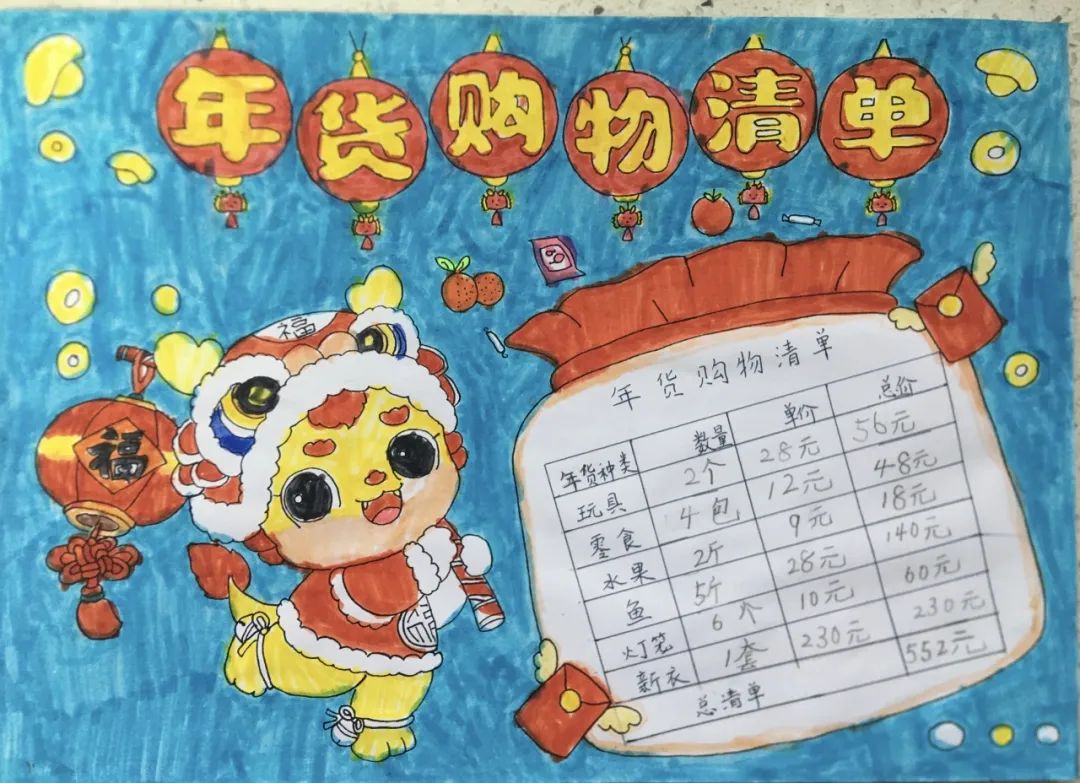 年货购物清单
福
福
年货购物清单
年货种类 数量 单价 总价
玩具 2个 28元 56元
零食 4包 12元 48元
水果 2斤 9元 18元
鱼 5斤 28元 140元
灯笼 6个 10元 60元
新衣 1套 230元 230元
总清单 552元